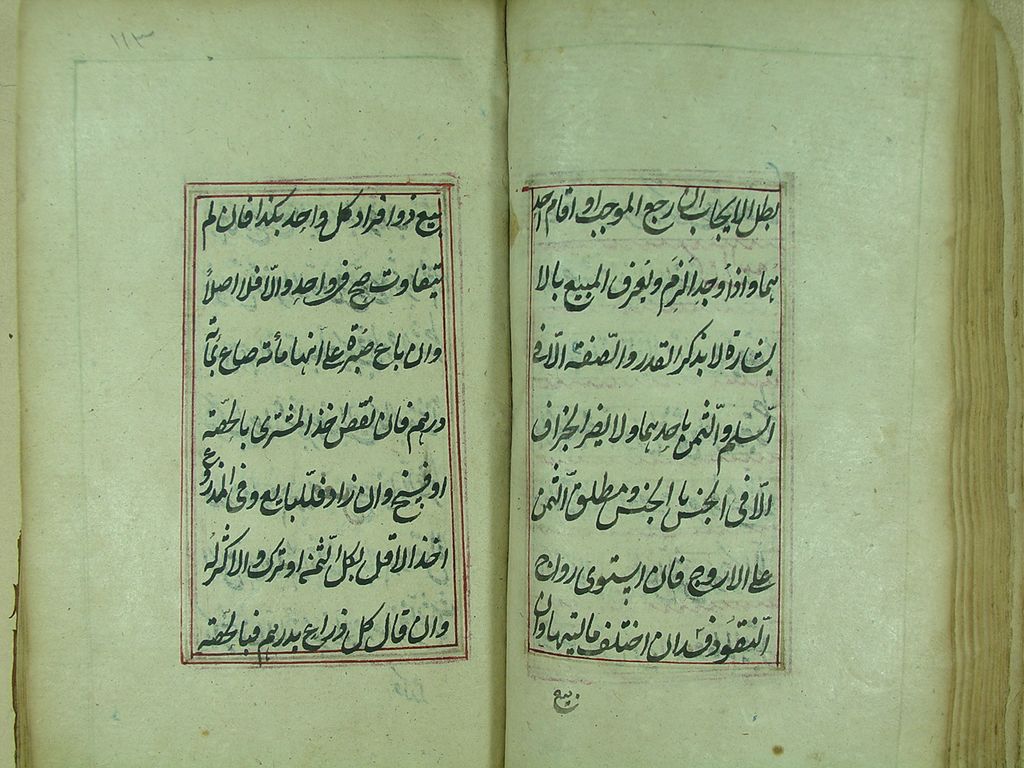 بطل الايجاب ان رجع الموجب او اقام احد
هما واذا وجد الزم ويعرف المبيع بالا
يشارة لا بذكر القدر والصفته الّا فى
السلم والثمن باحدهما ولا يضر الجزاف
الّا فى الجنس با الجنس ومطلق الثمن
على الاروج فان ايستوى رواج
النقود فسد ان اختلف ماليتها وان
بيع
١١٣
بيع ذوا فراد كل واحد بكذا فان لم
يتفاوت صحّ فى واحد والّا فلا اصلاً
وان باع صبرة على انها مأته صاع بمأته
درهم فان نقص اخذ المشترى بالحصّته
او فسخ وان زاد فللبايع وفى المذروع
اخذ الاقل بكل الثمنه او ترك والاكثر له
وان قال كل ذراع بدرهم فبالحصّته